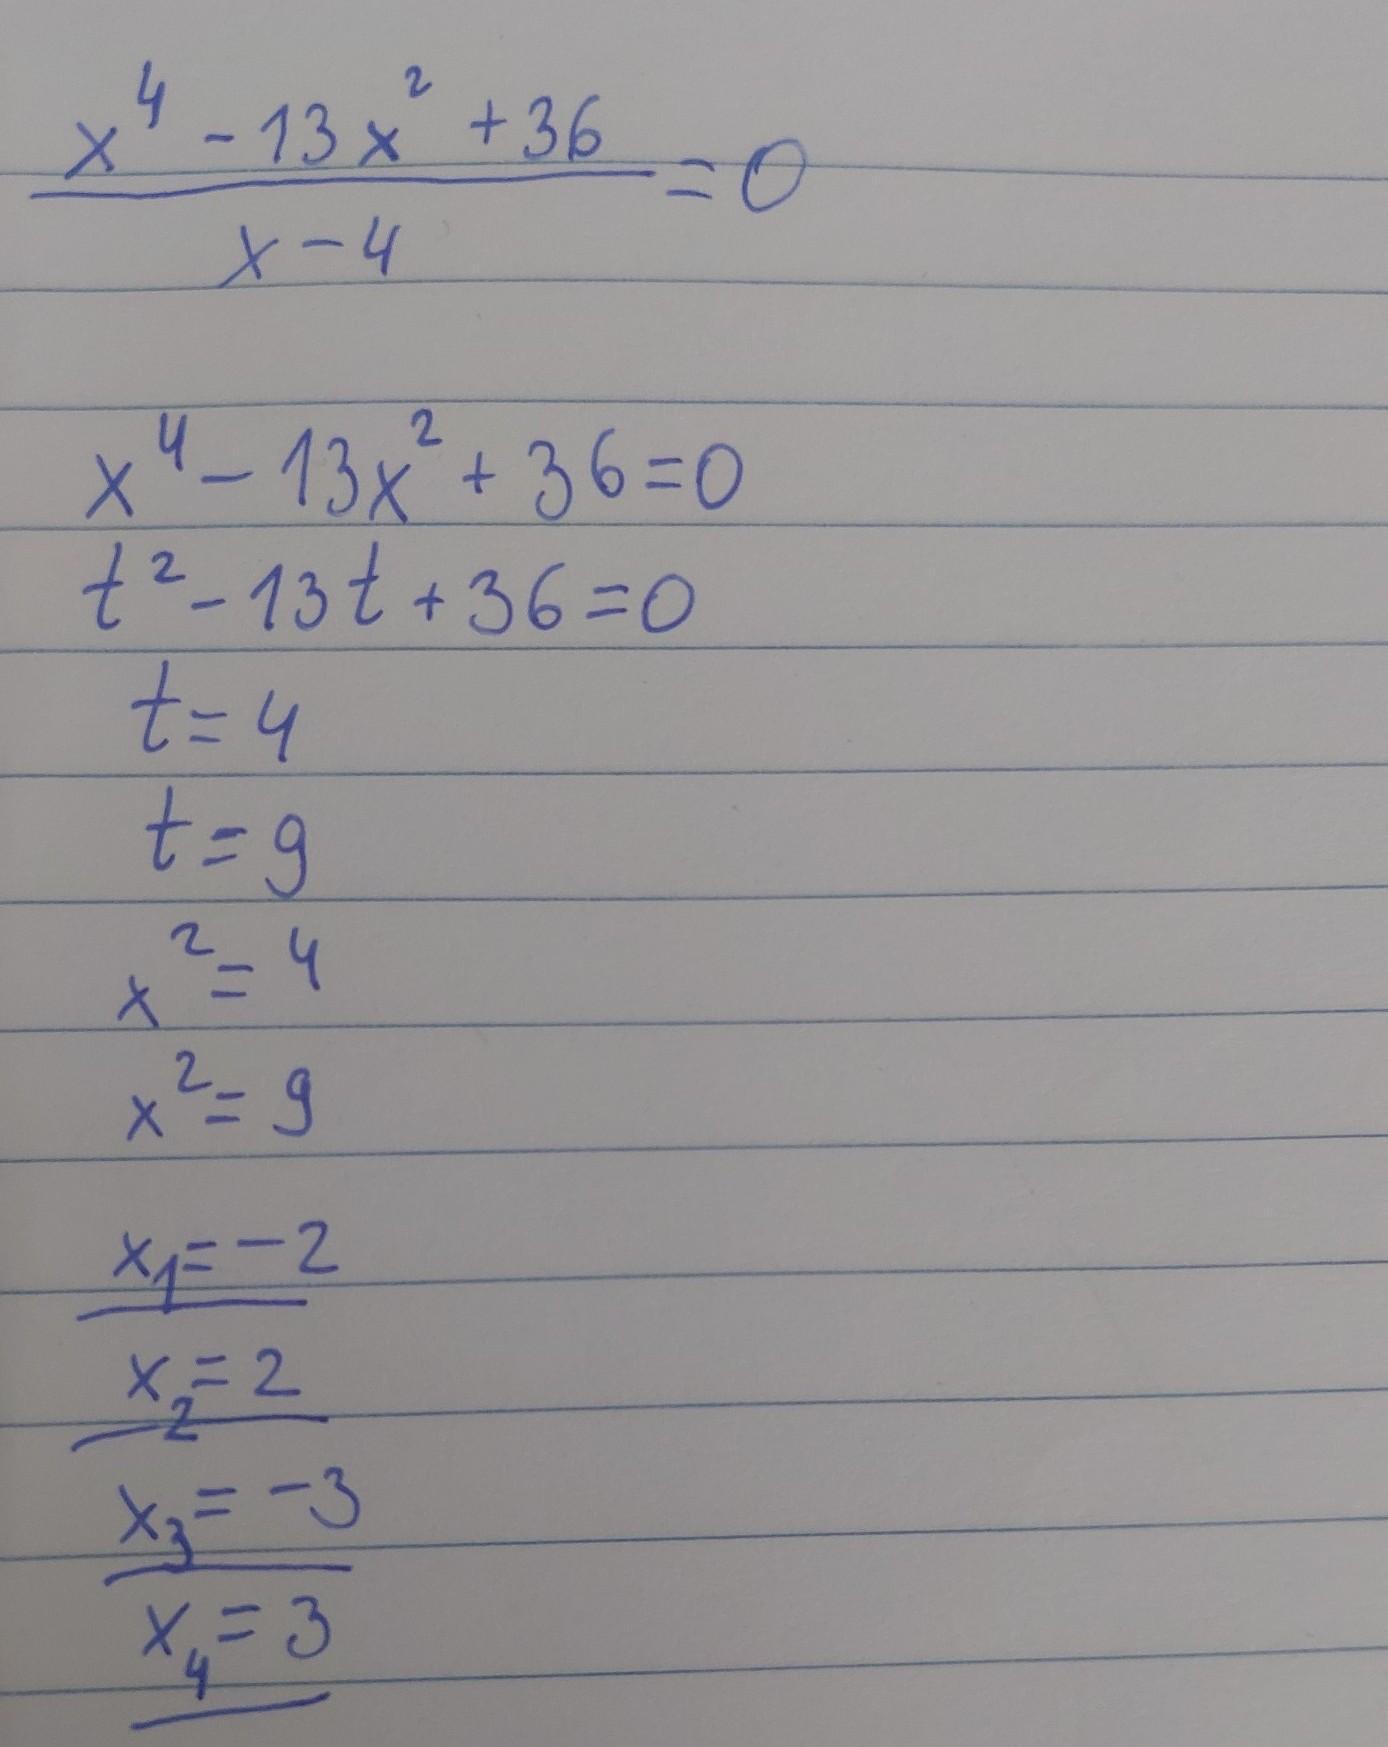 x⁴ - 13x² + 36
x - 4
= 0
x⁴ - 13x² + 36 = 0
t² - 13t + 36 = 0
t = 4
t = 9
x² = 4
x² = 9
x₁ = -2
x₂ = 2
x₃ = -3
x₄ = 3